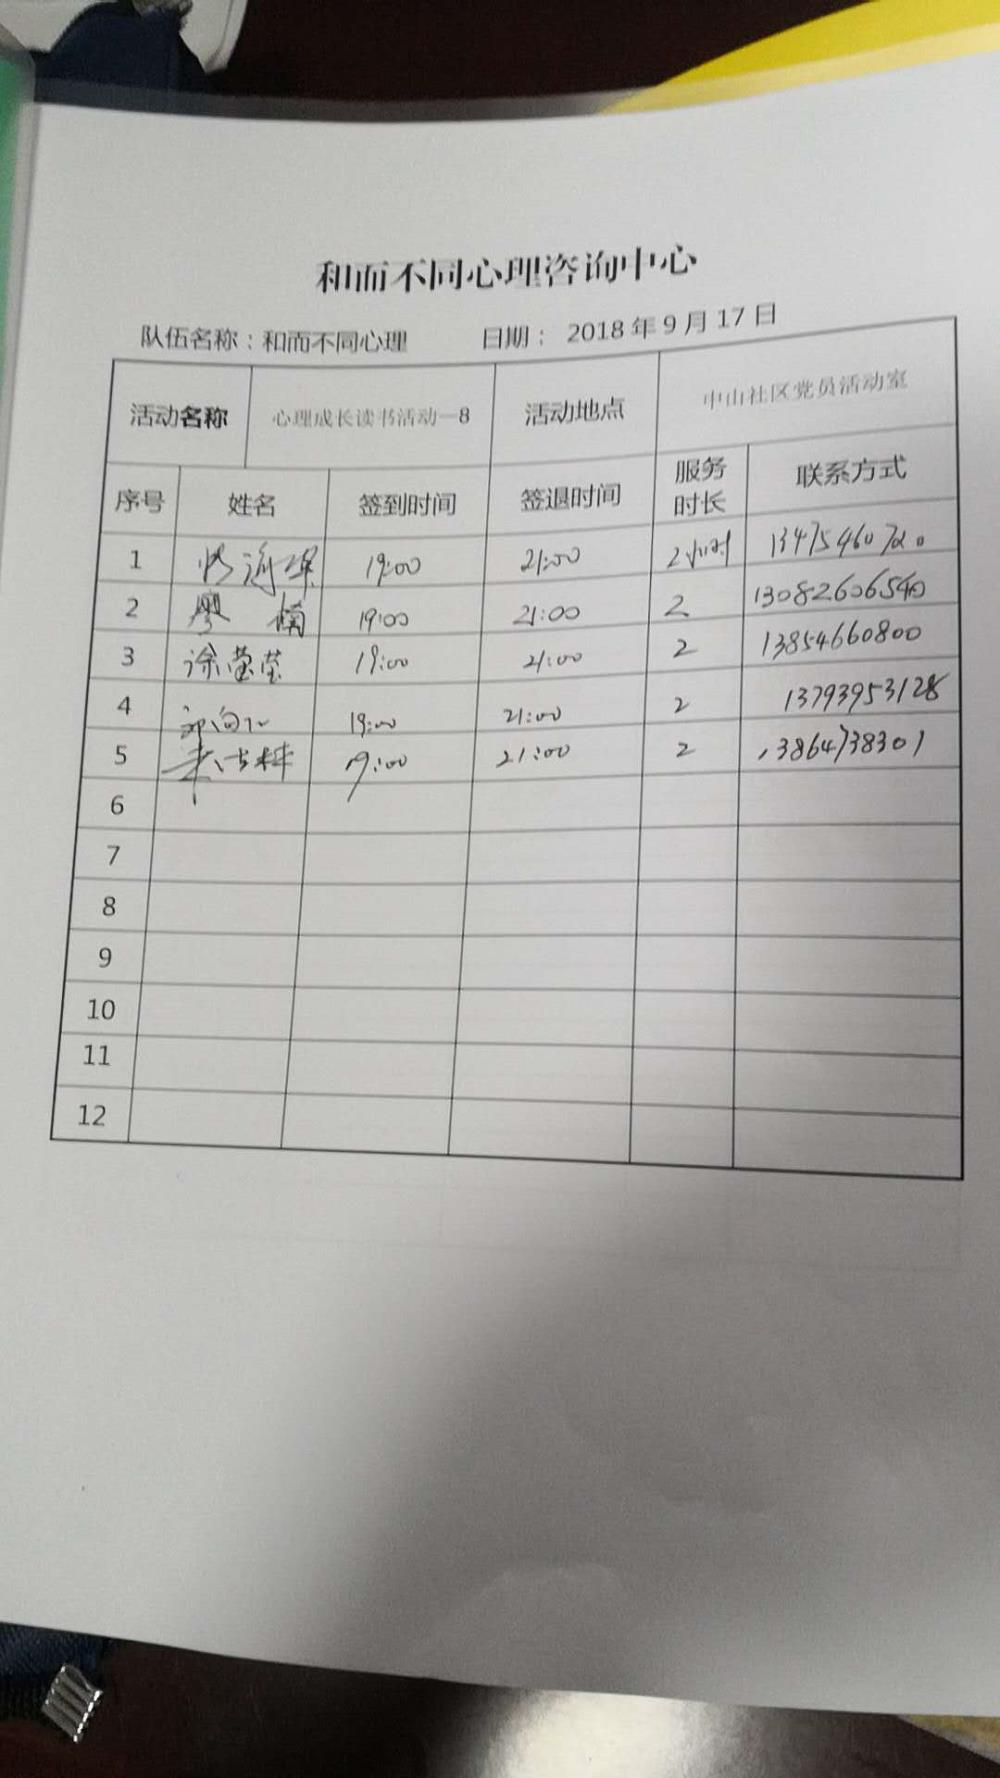 和而不同心理咨询中心
队伍名称：和而不同心理 日期： 2018年9月17日
活动名称 心理成长读书活动—8 活动地点 中山社区党员活动室
序号 姓名 签到时间 签退时间 服务时长 联系方式
1 19:00 21:00 2小时 13475460720
2 廖楠 19:00 21:00 2 13082606540
3 徐莹莹 19:00 21:00 2 13854660800
4 19:00 21:00 2 13793953128
5 19:00 21:00 2 13864738301
6
7
8
9
10
11
12